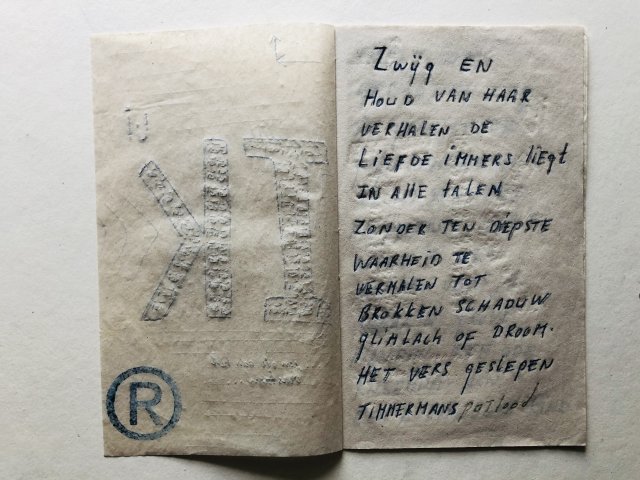 ®
Zwijg EN
HOUD VAN HAAR
VERHALEN DE
LIEFDE immERS LIEgt
IN AllE tALEN
ZONDER TEN DIEPSTE
WAARHEID TE
VERHALEN TOT
BROKKEN SCHADUW
gLIMLACH OF DROOM.
HET VERS GESLEPEN
TIMMERMANS POTLOOD